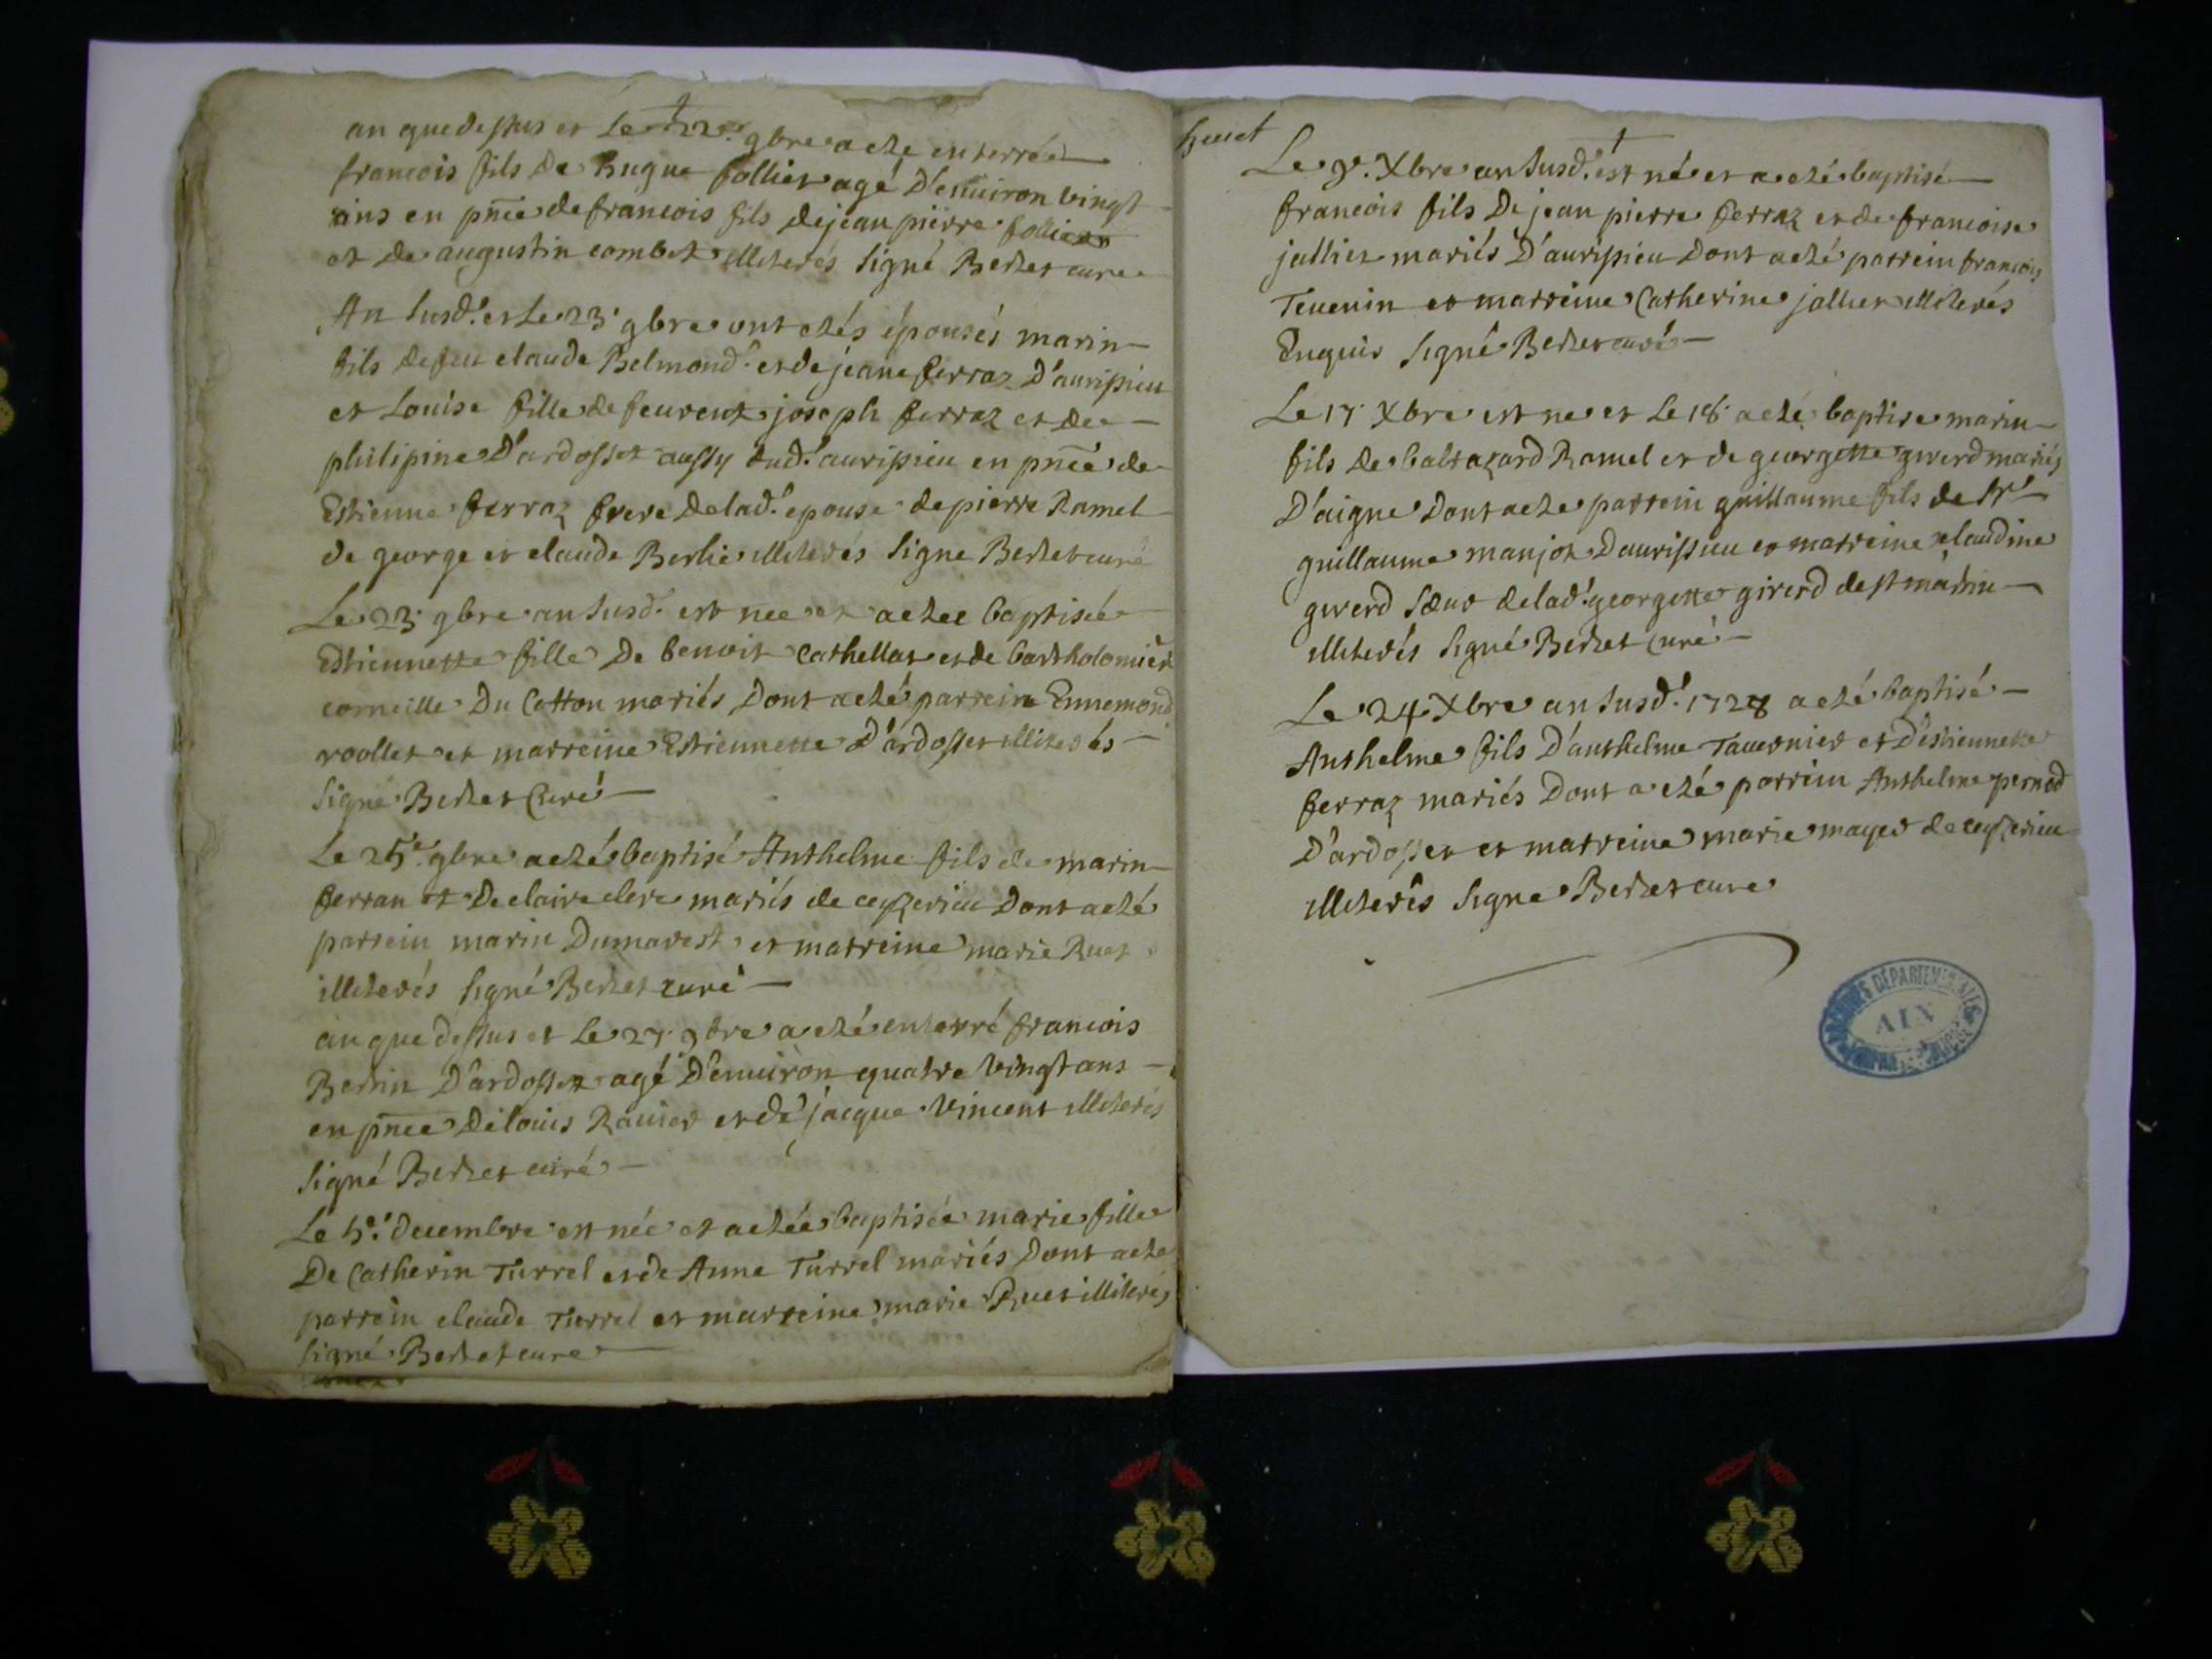 an que dessus et Le 22e. 9bre a ete enterré
francois fils De hugue follier agé D'enuiron vingt
ans en pn̄ce de francois fils de jean pierre follier
et de augustin combet illiterés signé Berlet curé
An susd.t et Le 23. 9bre ont etés épousés marin
fils de feu claude Belmond. et de jeane ferraz D'aurissieu
et Louise fille de feu joseph ferraz et de
philipine D'ardosset aussy dud.t aurissieu en pn̄ce de
Estienne ferraz frere de lad.e epouse de pierre Ramel
de george et claude Berlie illiterés signe Berlet curé
Le 23. 9bre an susd.t est nee et a etee baptisée
Estiennette fille De benoit Cathellat et de bartholomiere
corneille Du Catton mariés Dont a eté parrein Ennemond
roollet et marreine Estiennette D'ardosset illiterés
signé Berlet Curé
Le 25e. 9bre a eté baptisé Anthelme fils de marin
ferran et De claire clere mariés de ceyzerieu Dont a eté
parrein marin Dumarest et marreine marie Ruet
illiterés signé Berlet curé
an que dessus et Le 27. 9bre a eté enterré francois
Bertin D'ardosset agé D'enuiron quatre vingt ans
en pn̄ce de louis Rauier et de jacque vincent illiterés
signé Berlet curé
Le 5e. decembre est née et a etée baptisée marie fille
De Catherin Turrel et de Anne Turrel mariés Dont a ete
parrein claude Turrel et marreine marie Ruet illiterés
signé Berlet cure
huict
Le 9e. Xbre an susd.t est né et a eté baptisé
francois fils De jean pierre ferraz et de francoise
jullier mariés D'aurissieu Dont a eté parrein francois
Teuenin et marreine Catherine jallier illiterés
Enquis signé Berlet curé
Le 17. Xbre est ne et Le 18. a eté baptise marin
fils de baltazard Ramel et de georgette girerd mariés
D'aigne Dont a ete parrein guillaume fils de Sr
guillaume manjot D'aurissieu et marreine claudine
girerd sœur de lad.e georgette girerd de st martin
illiterés signé Berlet Curé
Le 24 Xbre an susd.t 1728 a eté baptisé
Anthelme fils D'anthelme Tauernier et D'estiennette
ferraz mariés Dont a eté parrein Anthelme pernod
D'ardosset et marreine marie mayer de ceyzerieu
illiterés signe Berlet cure
ARCHIVES DÉPARTEMENTALES
AIN